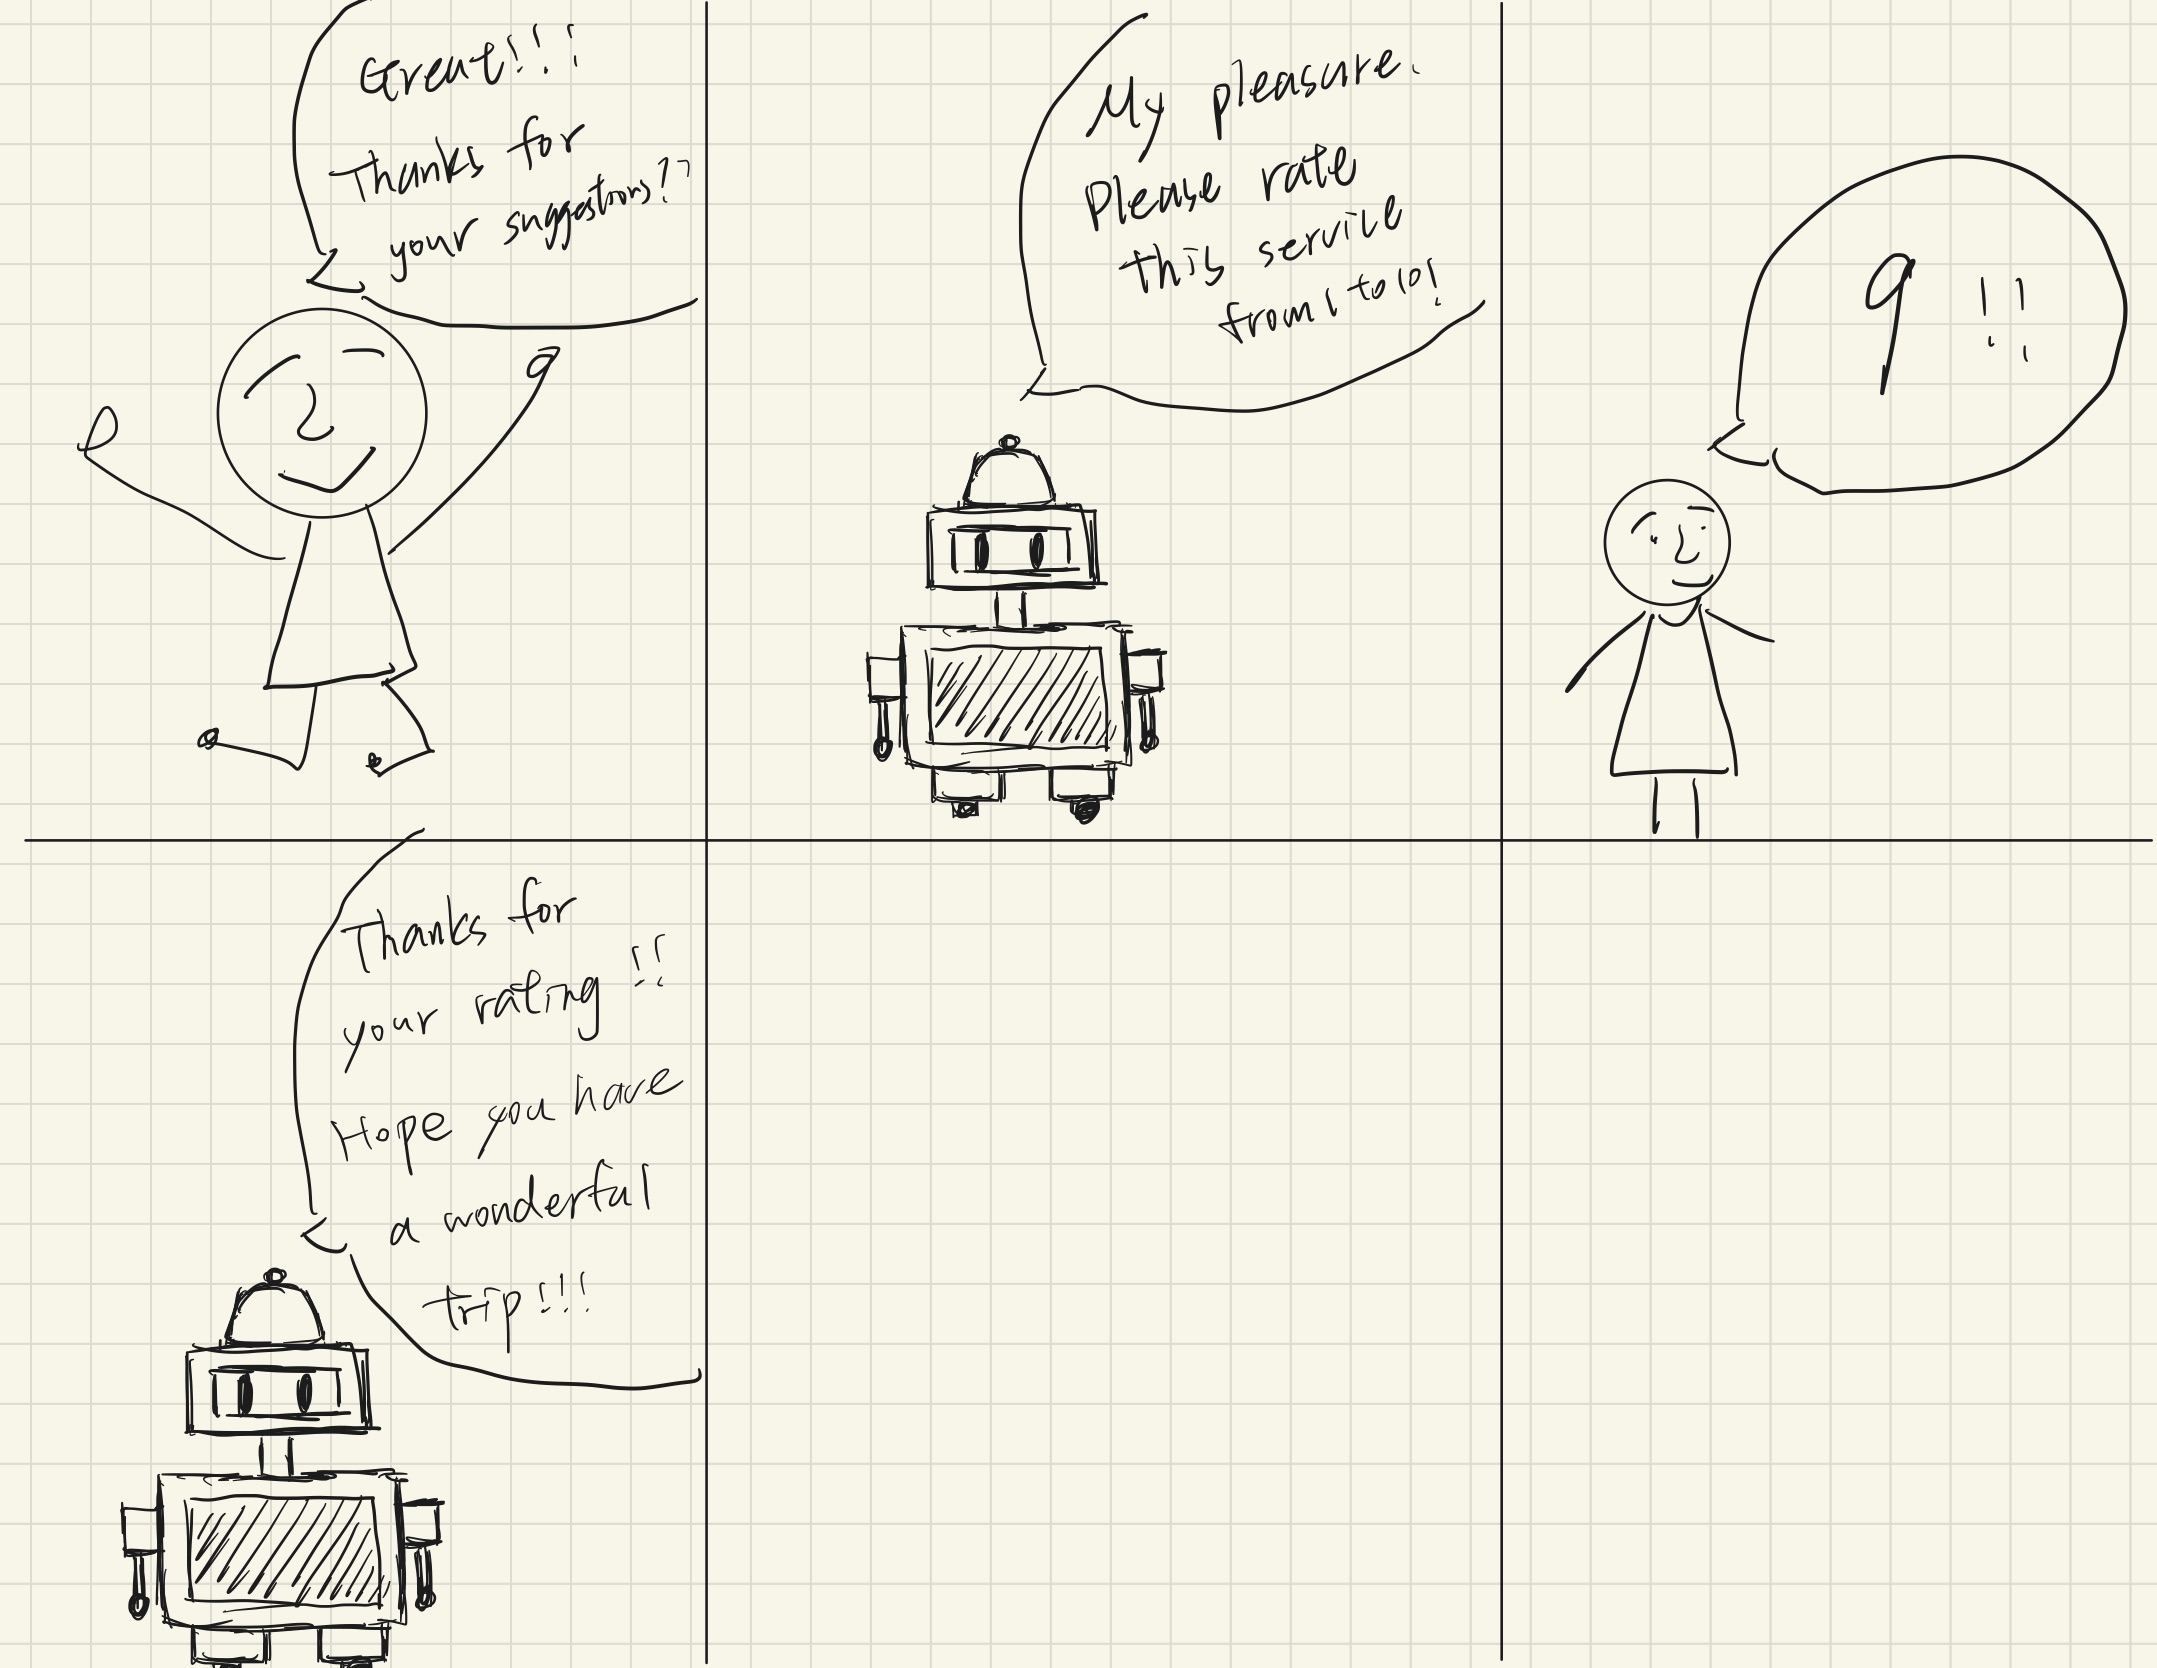 Great!!!
Thanks for
your suggestions??
My pleasure.
Please rate
this service
from 1 to 10!
9 !!
Thanks for
your rating!!
Hope you have
a wonderful
trip!!!